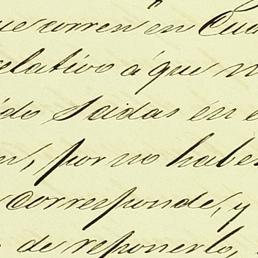 ue corren en Cua
relativo á que n
ido Seidas en e
n, por no habe
corresponde, y
de reponerlo,